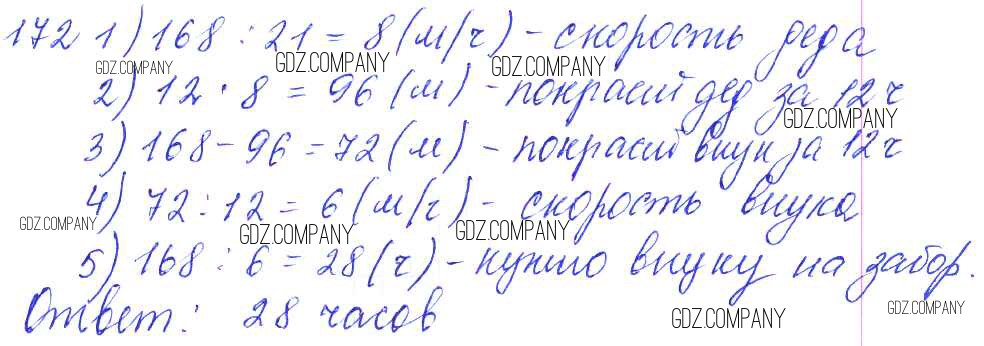 172 1) 168 : 21 = 8 (м/ч) - скорость деда
GDZ.COMPANY GDZ.COMPANY GDZ.COMPANY
2) 12 · 8 = 96 (м) - покрасил дед за 12 ч
GDZ.COMPANY
3) 168 - 96 = 72 (м) - покрасил внук за 12 ч
4) 72 : 12 = 6 (м/ч) - скорость внука
GDZ.COMPANY GDZ.COMPANY GDZ.COMPANY
5) 168 : 6 = 28 (ч) - нужно внуку на забор.
Ответ: 28 часов
GDZ.COMPANY GDZ.COMPANY